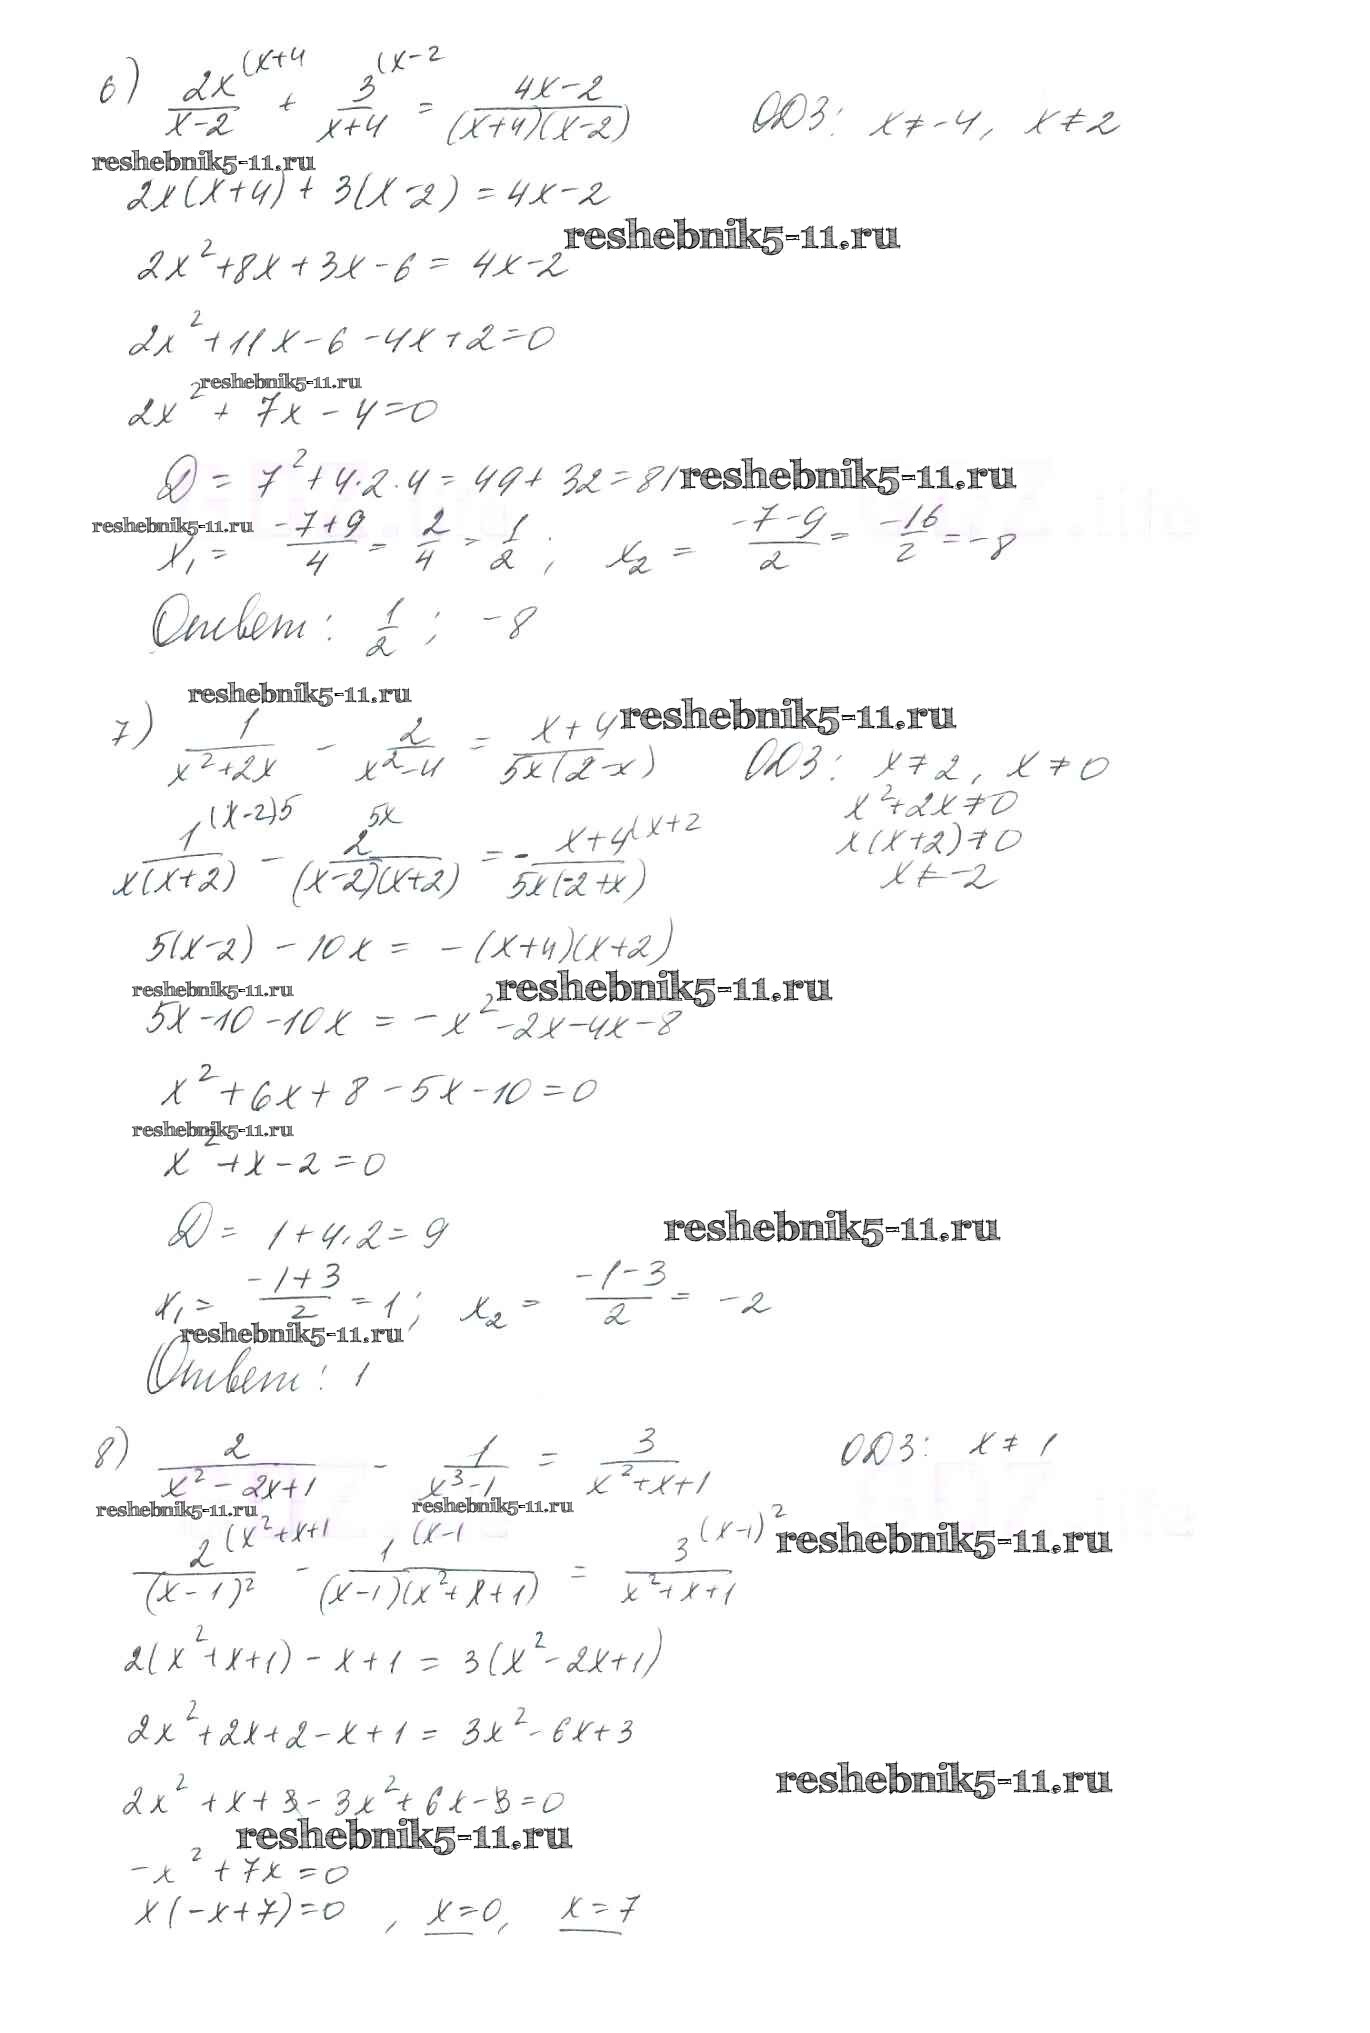 6) 2x^(x+4 / x-2 + 3^(x-2 / x+4 = 4x-2 / (x+4)(x-2) ОДЗ: x≠-4, x≠2
reshebnik5-11.ru
2x(x+4) + 3(x-2) = 4x-2
reshebnik5-11.ru
2x²+8x+3x-6 = 4x-2
2x²+11x-6-4x+2=0
reshebnik5-11.ru
2x²+7x-4=0
D = 7²+4·2·4 = 49+32=81
reshebnik5-11.ru
reshebnik5-11.ru
x₁ = -7+9 / 4 = 2/4 = 1/2 ; x₂ = -7-9 / 2 = -16 / 2 = -8
Ответ: 1/2 ; -8
reshebnik5-11.ru
reshebnik5-11.ru
7) 1 / x²+2x - 2 / x²-4 = x+4 / 5x(2-x) ОДЗ: x≠2, x≠0
x²+2x≠0
1^(x-2)5 / x(x+2) - 2^5x / (x-2)(x+2) = - x+4^(x+2 / 5x(-2+x) x(x+2)≠0
x≠-2
5(x-2) - 10x = -(x+4)(x+2)
reshebnik5-11.ru
reshebnik5-11.ru
5x-10-10x = -x²-2x-4x-8
x²+6x+8-5x-10=0
reshebnik5-11.ru
x²+x-2=0
D = 1+4·2=9
reshebnik5-11.ru
x₁ = -1+3 / 2 = 1; x₂ = -1-3 / 2 = -2
reshebnik5-11.ru
Ответ: 1
8) 2 / x²-2x+1 - 1 / x³-1 = 3 / x²+x+1 ОДЗ: x≠1
reshebnik5-11.ru
reshebnik5-11.ru
2^(x²+x+1 / (x-1)² - 1^(x-1 / (x-1)(x²+x+1) = 3^(x-1)² / x²+x+1
reshebnik5-11.ru
2(x²+x+1)-x+1 = 3(x²-2x+1)
2x²+2x+2-x+1 = 3x²-6x+3
reshebnik5-11.ru
2x²+x+3-3x²+6x-3=0
reshebnik5-11.ru
-x²+7x=0
x(-x+7)=0 , x=0, x=7